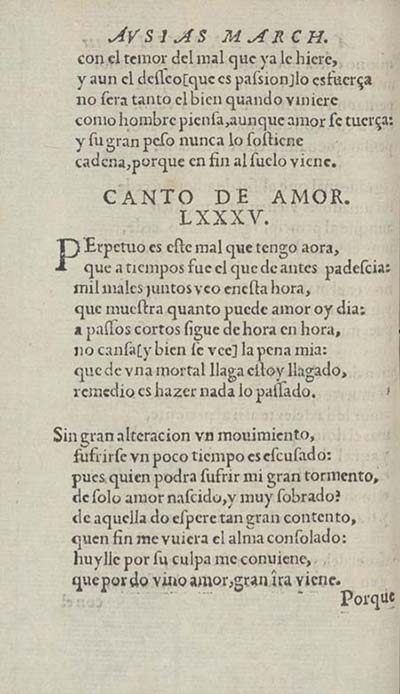 AVSIAS MARCH.
con el temor del mal que ya le hiere,
y aun el desseo[que es passion]lo esfuerça
no sera tanto el bien quando viniere
como hombre piensa, aunque amor se tuerça:
y su gran peso nunca lo sostiene
cadena, porque en fin al suelo viene.
CANTO DE AMOR.
LXXXV.
PErpetuo es este mal que tengo aora,
que a tiempos fue el que de antes padescia:
mil males juntos veo enesta hora,
que muestra quanto puede amor oy dia:
a passos cortos sigue de hora en hora,
no cansa[y bien se vee] la pena mia:
que de vna mortal llaga estoy llagado,
remedio es hazer nada lo passado.
Sin gran alteracion vn mouimiento,
sufrirse vn poco tiempo es escusado:
pues quien podra sufrir mi gran tormento,
de solo amor nascido, y muy sobrado?
de aquella do espere tan gran contento,
quen fin me vuiera el alma consolado:
huylle por su culpa me conuiene,
que por do vino amor, gran îra viene.
Porque